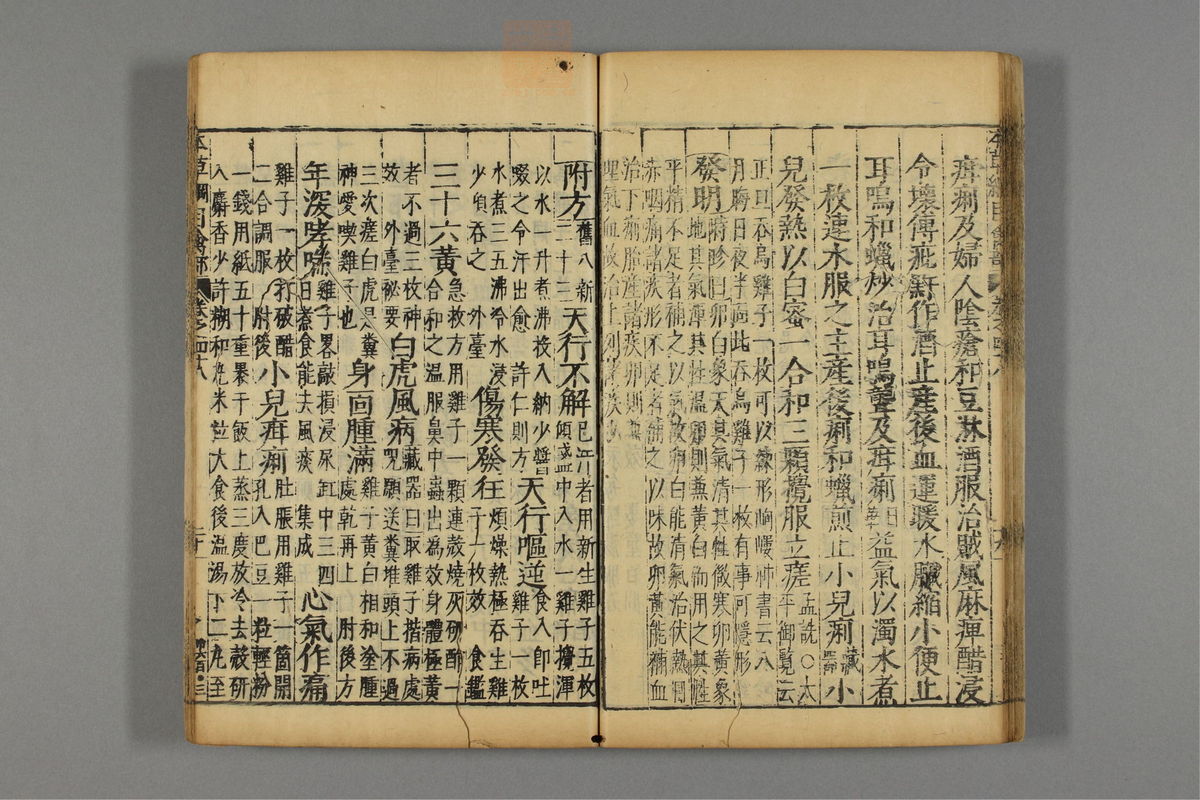 疳痢及婦人陰瘡和豆淋酒服治賊風麻痺醋浸
令壞傅疵䵟作酒止産後血運暖水臟縮小便止
耳鳴和蠟炒治耳鳴聾及疳痢日華益氣以濁水煮
一枚連水服之主産後痢和蠟煎止小兒痢藏器小
兒發熱以白蜜一合和三顆攪服立瘥孟詵○太平御覽云
正旦吞烏雞子一枚可以練形岣嶁神書云八
月晦日夜半面此吞烏雞子一枚有事可隱形
發明時珍曰卵白象天其氣清其性微寒卵黃象
地其氣渾其性溫卵則兼黃白而用之其性
平精不足者補之以氣故卵白能清氣治伏熱目
赤咽痛諸疾形不足者補之以味故卵黃能補血
治下痢胎産諸疾卵則兼
理氣血故治上列諸疾也
附方舊八新二十三天行不解已汗者用新生雞子五枚傾盞中入水一雞子攪渾
以水一升煮沸投入納少醬啜之令汗出愈 許仁則方天行嘔逆食入即吐雞子一枚
水煮三五沸冷水浸少頃吞之 外臺傷寒發狂煩燥熱極吞生雞子一枚效 食鑑
三十六黃急救方用雞子一顆連殼燒灰研酢一合和之溫服鼻中蟲出爲效身體極黃
者不過三枚神效 外臺秘要白虎風病藏器曰取雞子揩病處咒願送糞堆頭上不過
三次瘥白虎是糞神愛喫雞子也身面腫滿雞子黃白相和塗腫處乾再上 肘後方
年深哮喘雞子畧敲損浸尿缸中三四日煮食能去風痰 集成心氣作痛
雞子一枚打破醋二合調服 肘後小兒疳痢肚脹用雞子一箇開孔入巴豆一粒輕粉
一錢用紙五十重裹于飯上蒸三度放冷去殼研
入麝香少許糊和丸米粒大食後溫湯下二丸至
本草綱目禽部 卷之四十八